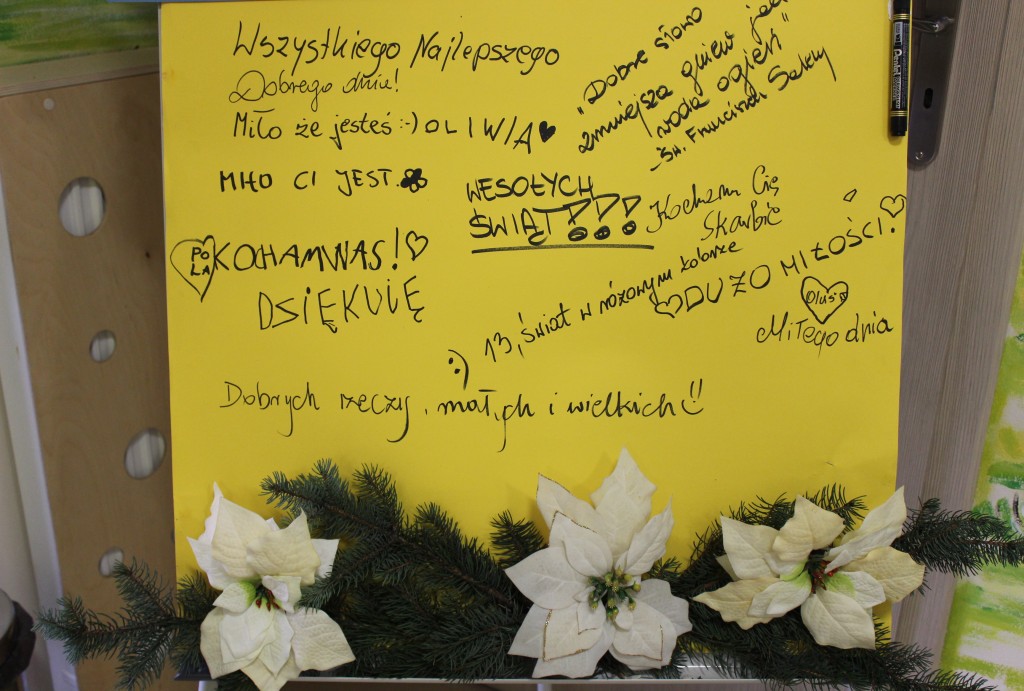 Wszystkiego Najlepszego
Dobrego dnia!
Miło że jesteś :-) OLIWIA ♥
MIŁO CI JEST.
"Dobre słowo
zmniejsza gniew jak
woda ogień"
- Św. Franciszek Salezy
WESOŁYCH
ŚWIĄT!!!
Kocham Cię
Skarbie
POLA
KOCHAMWAS! ♡
DSIĘKUIĘ
:) 13, świat w różowym kolorze
♡DUŻO MIŁOŚCI! ♡
Oluś
Miłego dnia
Dobrych rzeczy, małych i wielkich !!